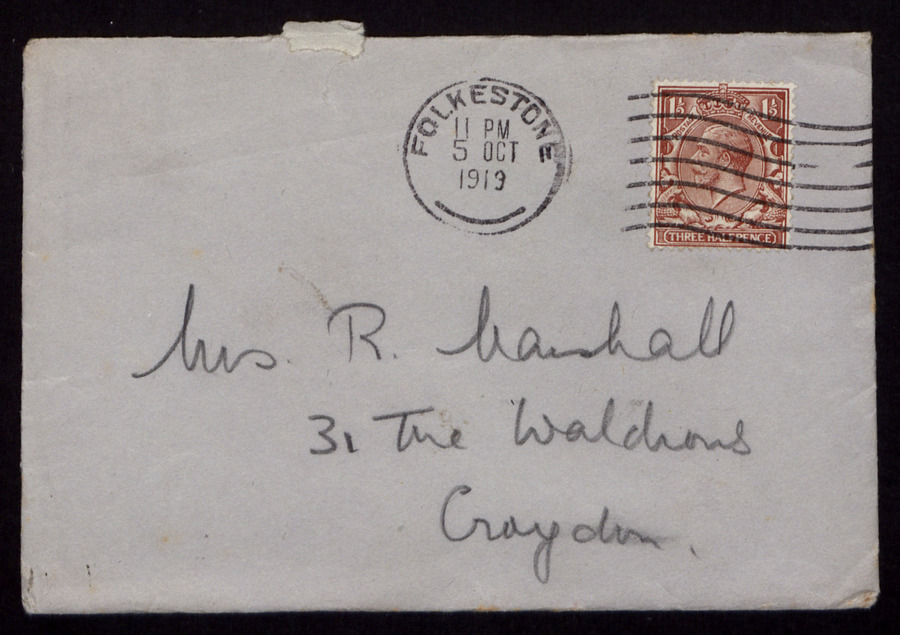 FOLKESTONE
11 PM
5 OCT
1919
1½ 1½
POSTAGE REVENUE
THREE HALFPENCE
Mrs. R. Marshall
31 The Waldrons
Croydon.